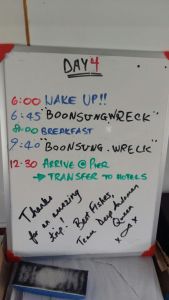 DAY 4
6:00 WAKE UP!!
6:45 "BOONSUNGWRECK"
8:00 BREAKFAST
9:40 "BOONSUNG.WRECK"
12:30 ARRIVE @ PIER
→ TRANSFER TO HOTELS
Thanks
for an amazing
trip. Best Fishes,
Team Deep Andaman
Queen
xOxOx